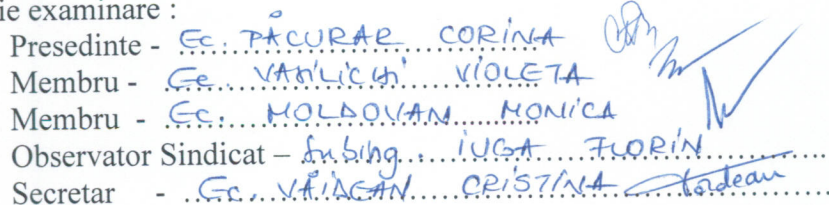 ie examinare :
Presedinte - Ec. PĂCURAR CORINA
Membru - Ec VASILICHI VIOLETA
Membru - Ec. MOLDOVAN MONICA
Observator Sindicat – Subing. IUGA FLORIN
Secretar - Ec. VĂIDEAN CRISTINA